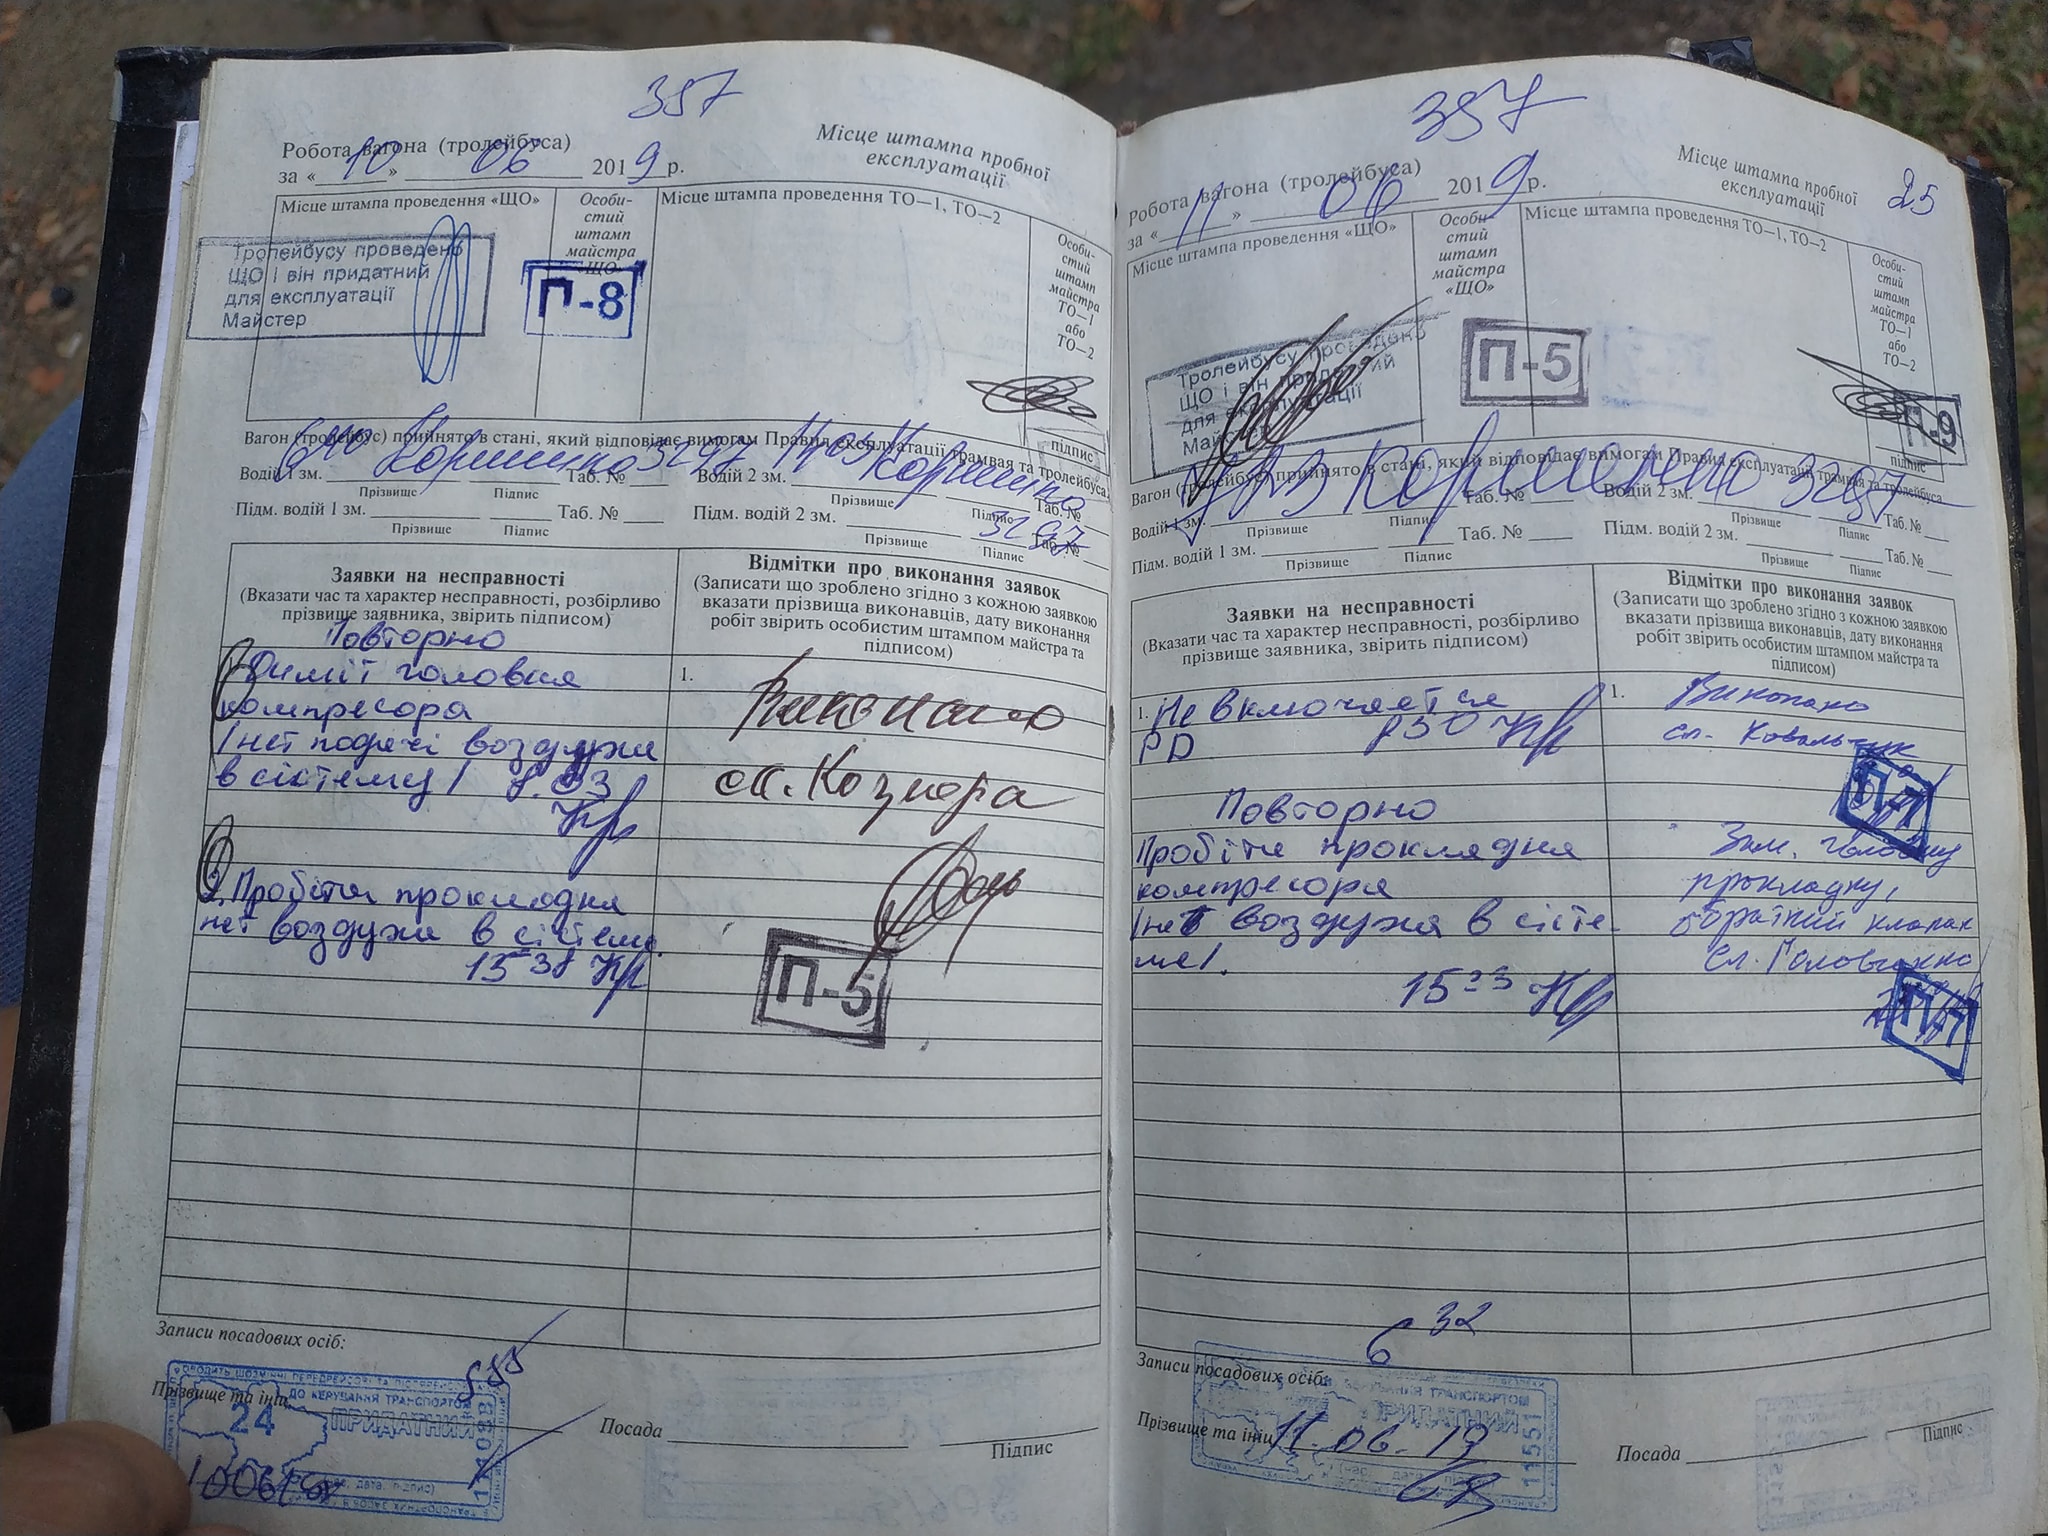 357
Робота вагона (тролейбуса)
за «10» 06 2019 р.
Місце штампа пробної
експлуатації
Місце штампа проведення «ЩО»
Особи-
стий
штамп
майстра
«ЩО»
Місце штампа проведення ТО—1, ТО—2
Особи-
стий
штамп
майстра
ТО—1
або
ТО—2
Тролейбусу проведено
ЩО і він придатний
для експлуатації
Майстер
П-8
підпис
Вагон (тролейбус) прийнято в стані, який відповідає вимогам Правил експлуатації трамвая та тролейбуса.
Водій 1 зм. Таб. № Водій 2 зм. Таб. №
3297
Прізвище Підпис Прізвище Підпис
Підм. водій 1 зм. Таб. № Підм. водій 2 зм. Таб. №
3297
Прізвище Підпис Прізвище Підпис
Заявки на несправності
(Вказати час та характер несправності, розбірливо
прізвище заявника, звірить підписом)
Відмітки про виконання заявок
(Записати що зроблено згідно з кожною заявкою
вказати прізвища виконавців, дату виконання
робіт звірить особистим штампом майстра та
підписом)
Повторно
1. Димит головка
компресора
/нет подачі воздуха
в сістему/ 8.03
2. Пробіта прокладка
нет воздуха в сістеме
15 38
1. Виконано
сл.
П-5
Записи посадових осіб:
Прізвище таініц. Посада
Підпис
ДО КЕРУВАННЯ ТРАНСПОРТОМ
24 ПРИДАТНИЙ
357
25
Робота вагона (тролейбуса)
за «11» 06 2019 р.
Місце штампа пробної
експлуатації
Місце штампа проведення «ЩО»
Особи-
стий
штамп
майстра
«ЩО»
Місце штампа проведення ТО—1, ТО—2
Особи-
стий
штамп
майстра
ТО—1
або
ТО—2
Тролейбусу проведено
ЩО і він придатний
для експлуатації
Майстер
П-5
П-9
підпис
Вагон (тролейбус) прийнято в стані, який відповідає вимогам Правил експлуатації трамвая та тролейбуса
Водій 1 зм. Таб. № Водій 2 зм. Таб. №
3297
Прізвище Підпис Прізвище Підпис
Підм. водій 1 зм. Таб. № Підм. водій 2 зм. Таб. №
Прізвище Підпис Прізвище Підпис
Заявки на несправності
(Вказати час та характер несправності, розбірливо
прізвище заявника, звірить підписом)
Відмітки про виконання заявок
(Записати що зроблено згідно з кожною заявкою
вказати прізвища виконавців, дату виконання
робіт звірить особистим штампом майстра та
підписом)
1. Не включяется
РД 8 50
Повторно
Пробіта прокладка
компресора
/нет воздуха в сісте-
ме/.
15 33
1. Виконано
сл. Ковальчук
П-7
Зам. головку
прокладку,
обратний клапан
сл.
П-7
6 32
Записи посадових осіб:
Прізвище та ініц. 11.06.19 Посада
Підпис
КЕРУВАННЯ ТРАНСПОРТОМ
ПРИДАТНИЙ
11551